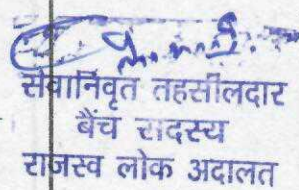 सेवानिवृत तहसीलदार
बैंच सदस्य
राजस्व लोक अदालत